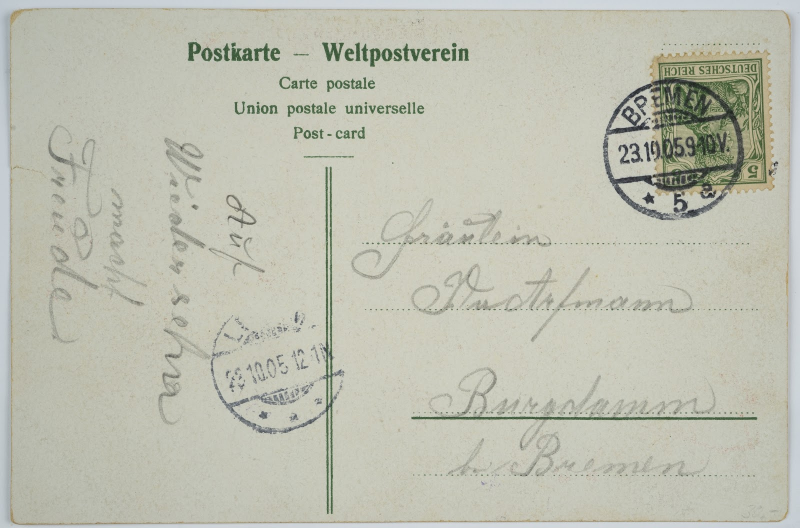 Postkarte — Weltpostverein
Carte postale
Union postale universelle
Post-card
DEUTSCHES REICH
5
BREMEN
23.10.05.9-10V.
* 5 a
Auf
Wiedersehn
macht
Freude
23.10.05.12-1N
Fräulein
Burgdamm
b. Bremen